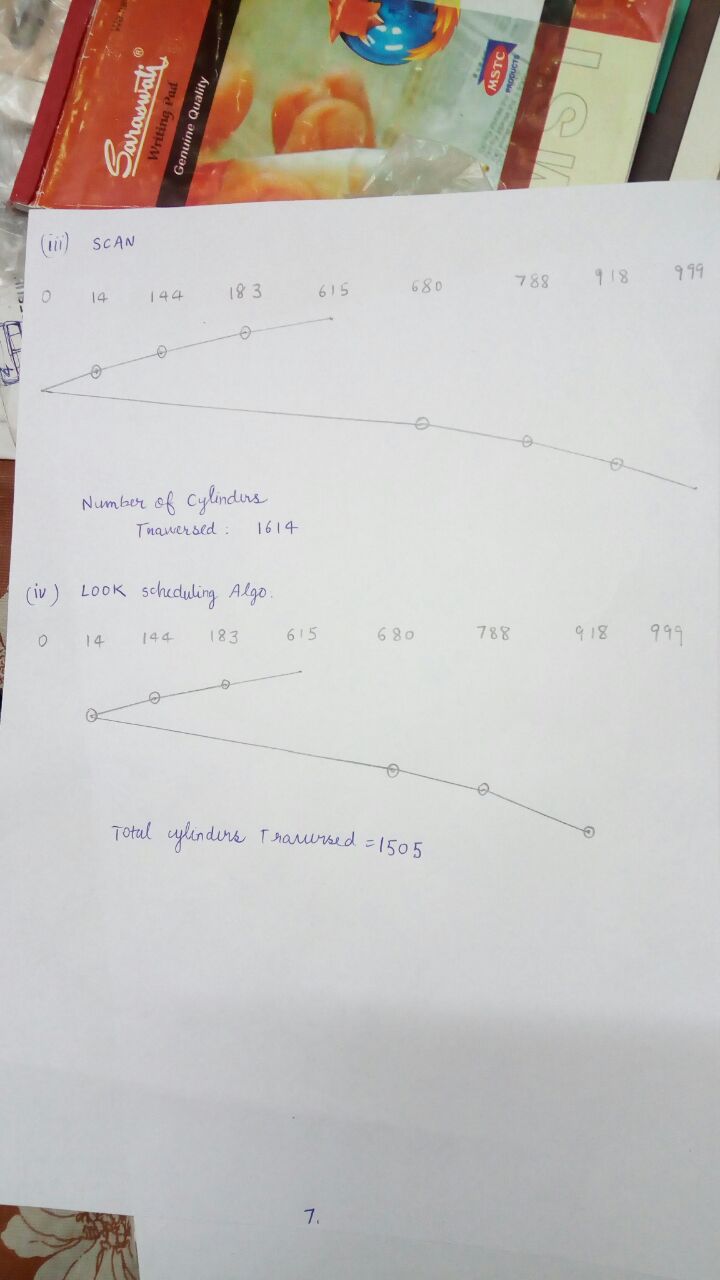 Saraswati®
Writing Pad
Genuine Quality
MSTC
PRODUCTS
(iii) SCAN
0 14 144 183 615 680 788 918 999
Number of Cylinders
Traversed : 1614
(iv) LOOK scheduling Algo.
0 14 144 183 615 680 788 918 999
Total cylinders Traversed = 1505
7.